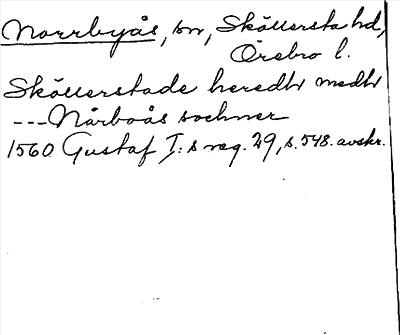 Norrbyås, sn, Sköllersta hd,
Örebro l.
Sköllerstade heredtr medtr
---Nårboås sochner
1560 Gustaf I:s reg. 29, s. 548. avskr.